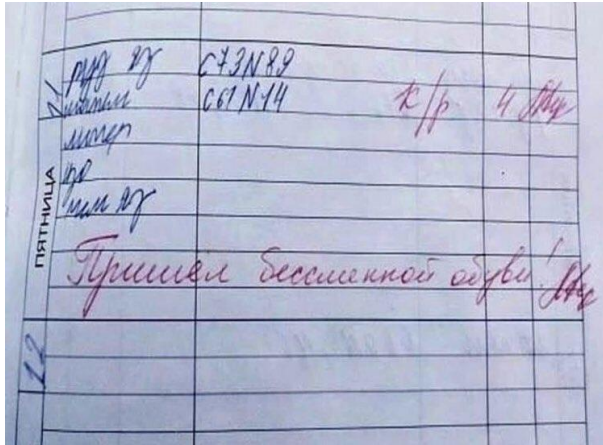 ПЯТНИЦА
21
руд яз С73N89
матем С61N14 К/р 4
литер
ИЗО
чтм яз
Пришёл бессменной обуви!
12